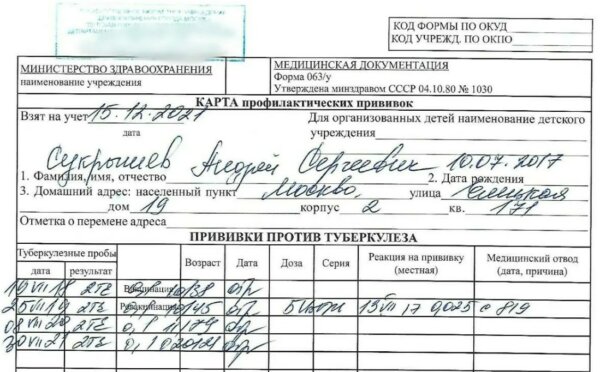 КОД ФОРМЫ ПО ОКУД
КОД УЧРЕЖД. ПО ОКПО
МИНИСТЕРСТВО ЗДРАВООХРАНЕНИЯ
наименование учреждения
МЕДИЦИНСКАЯ ДОКУМЕНТАЦИЯ
Форма 063/у
Утверждена минздравом СССР 04.10.80 № 1030
КАРТА профилактических прививок
Взят на учет 15.12.2021
дата
Для организованных детей наименование детского
учреждения
Сукрышев Андрей Сергеевич 10.07.2017
1. Фамилия, имя, отчество 2. Дата рождения
3. Домашний адрес: населенный пункт Москва, улица Елецкая
дом 19 корпус 2 кв. 171
Отметка о перемене адреса
ПРИВИВКИ ПРОТИВ ТУБЕРКУЛЕЗА
Туберкулезные пробы Возраст Дата Доза Серия Реакция на прививку (местная) Медицинский отвод (дата, причина)
дата результат
10 VII 18 2ТЕ Вакцинация отр
25 VII 19 2ТЕ Ревакцинация отр 13 VII 17 0,025 с 819
08 VII 20 2ТЕ 0,1 отр
30 VII 21 2ТЕ 0,1 отр